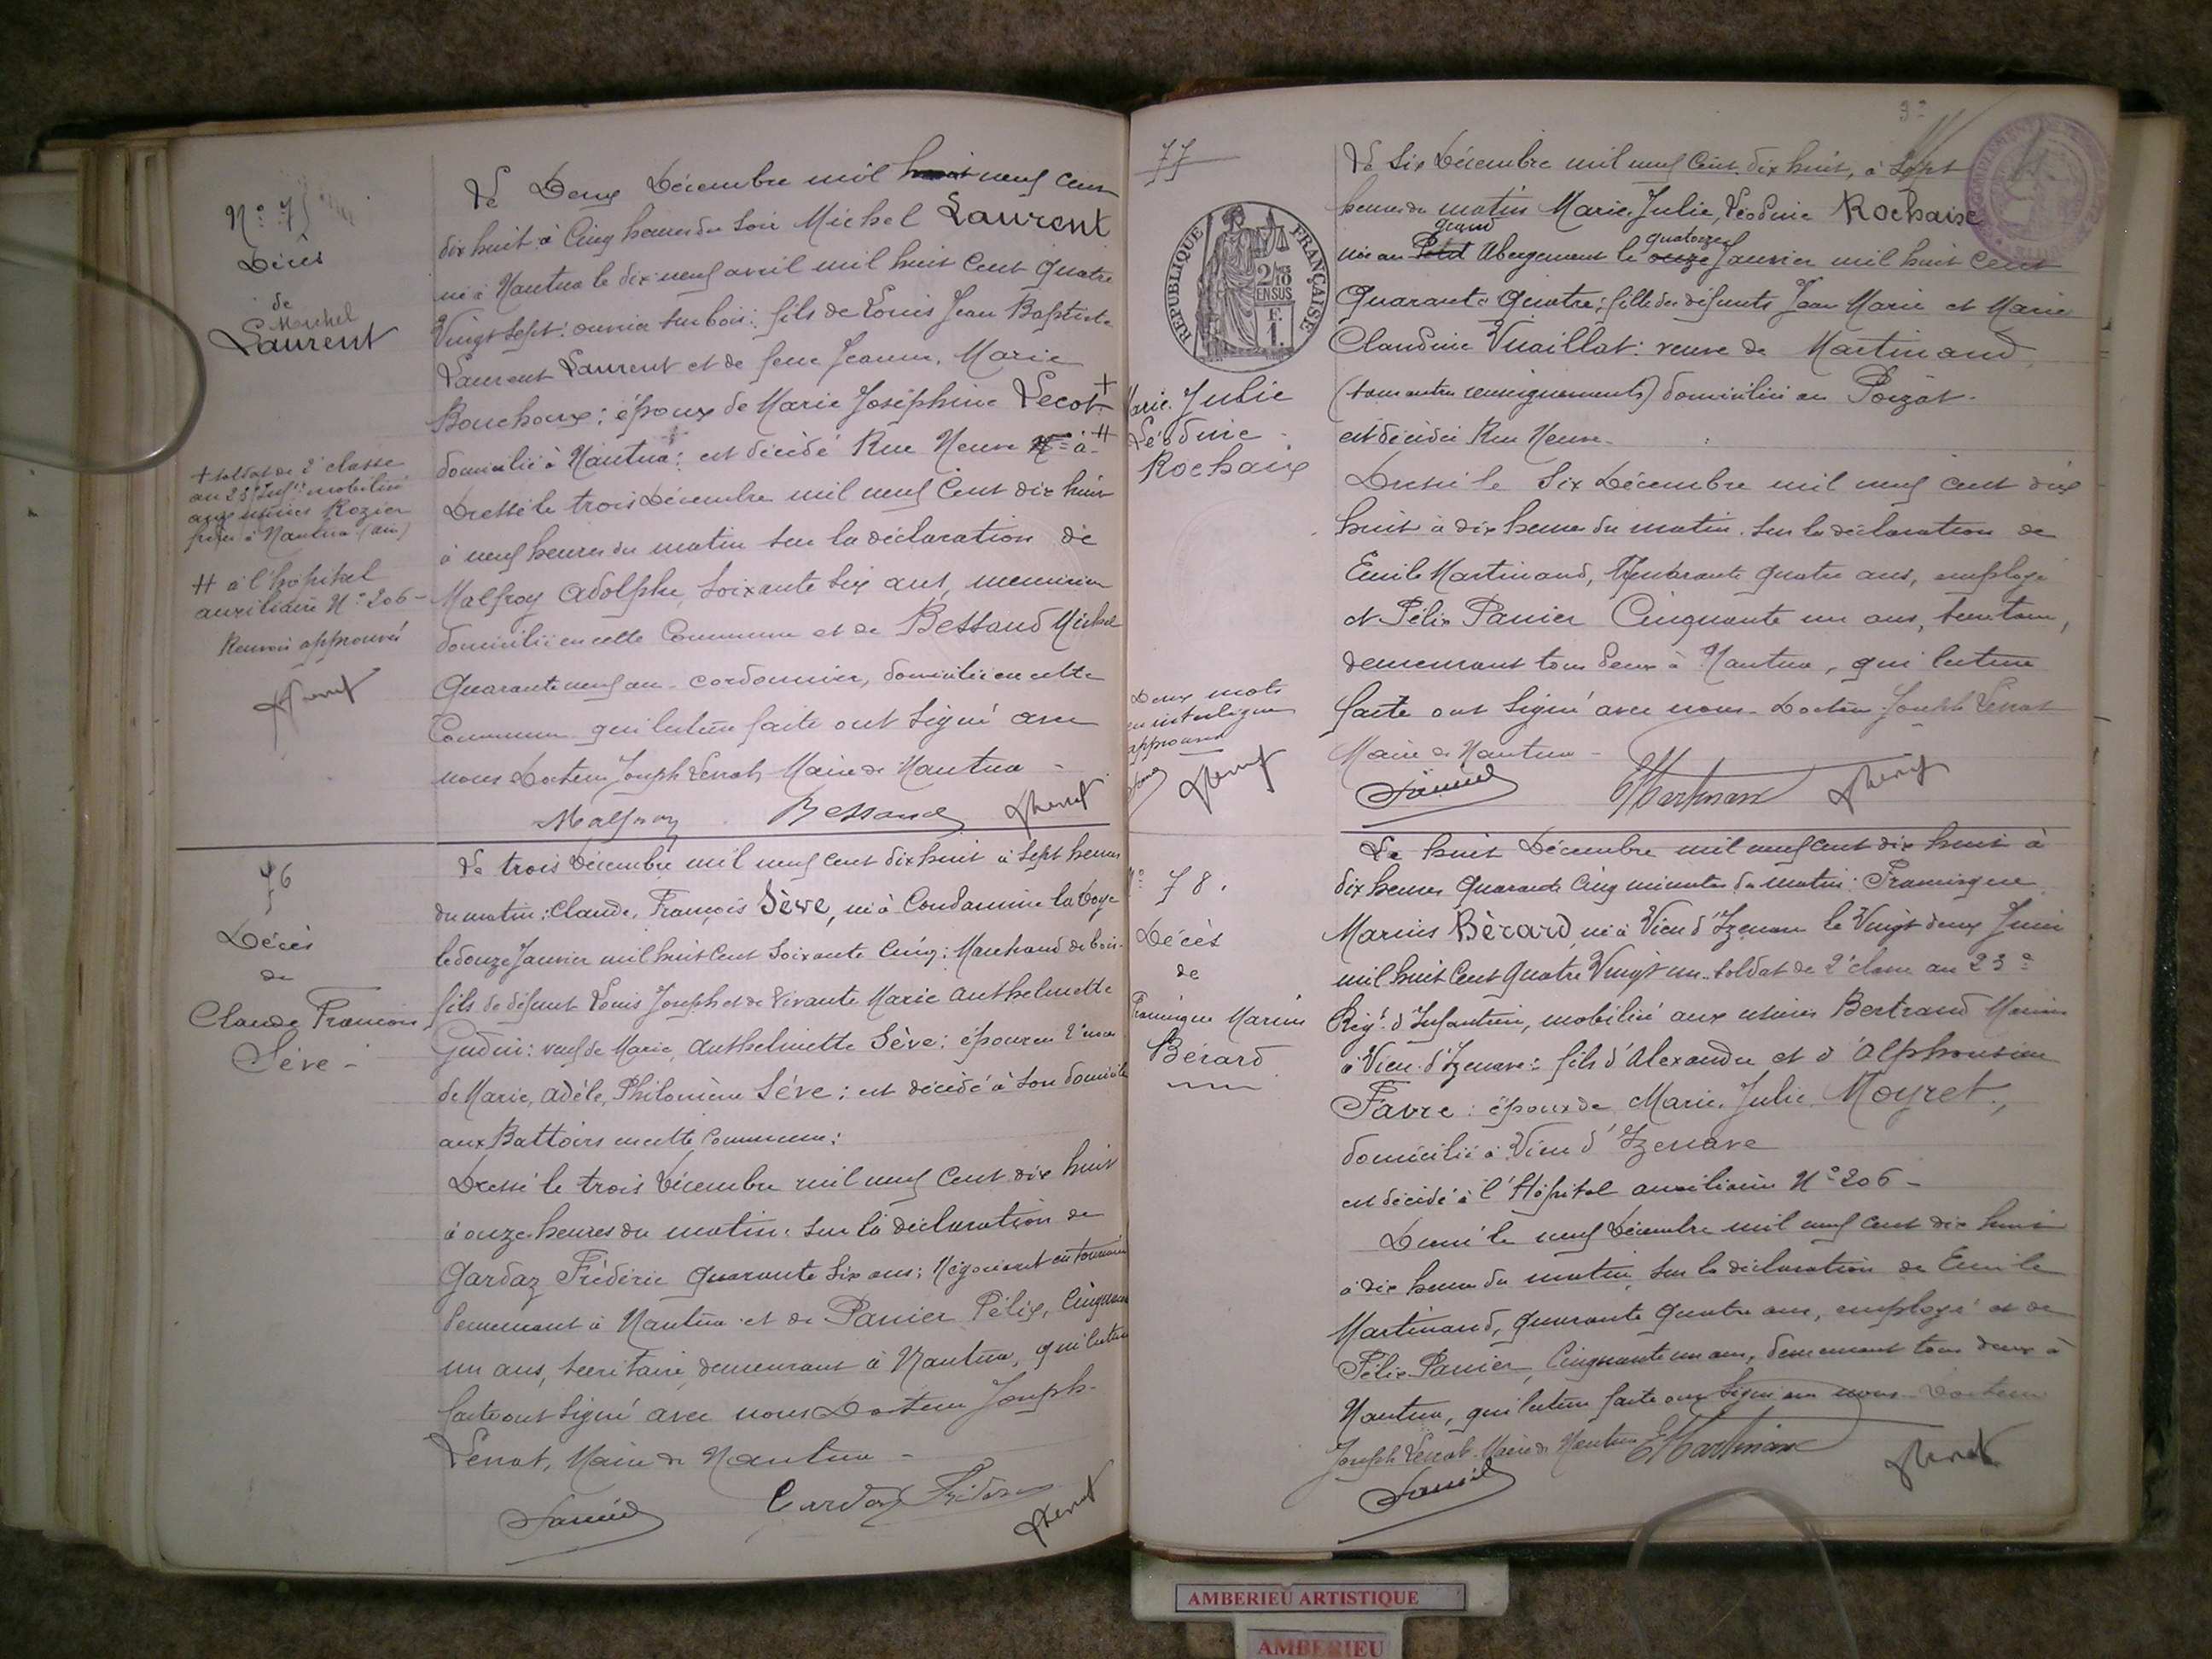 N° 75
Décès
de
Michel
Laurent
+ soldat de 2e classe
au 23e Infie mobilisé
aux usines Rozier
frères à Nantua (ain)
++ à l'hôpital
auxiliaire N° 206 -
Renvois approuvés
Le Deux Décembre mil huit neuf cent
dix huit à Cinq heures du soir Michel Laurent
né à Nantua le dix neuf avril mil huit Cent Quatre
Vingt Sept : ouvrier sur bois : fils de Louis Jean Baptiste
Laurent Laurent et de feue Jeanne, Marie
Bouchoux ; époux de Marie Joséphine Lecot +
domicilié à Nantua : est décédé Rue Neuve N° = à - ++
Dressé le trois Décembre mil neuf Cent dix huit
à neuf heures du matin sur la déclaration de
Malfroy Adolphe, Soixante Six ans, menuisier
domicilié en cette Commune et de Bessand Michel
Quarante neuf ans - cordonnier, domicilié en cette
Commune qui lecture faite ont Signé avec
nous Docteur Joseph Verrat Maire de Nantua -
Malfroy Bessand
76
Décès
de
Claude François
Sève -
Le trois Décembre mil neuf cent dix huit à Sept heures
du matin : Claude, François Sève, né à Condamine la Doye
le douze Janvier mil huit Cent Soixante Cinq : Marchand de bois -
fils de défunt Louis Joseph et de Vivante Marie Anthelmette
Gudin : veuf de Marie, Anthelmette Sève ; époux en
de Marie, Adèle, Philomène Sève ; est décédé à Son domicile
aux Battoirs en cette Commune :
Dressé le trois Décembre mil neuf Cent dix huit
à onze heures du matin : Sur la déclaration de
Gardaz Frédéric Quarante Six ans ; Négociant en
demeurant à Nantua et de Panier Félix, Cinquante
un ans, Secrétaire, demeurant à Nantua, qui lecture
faite ont Signé avec nous Docteur Joseph -
Verrat, Maire de Nantua -
Panier Gardaz Frédéric
77
REPUBLIQUE FRANÇAISE
2/10
EN SUS
F.
1.
Marie. Julie
Léodine -
Rochaix
Deux mots
en interligne
approuvés
Le Six Décembre mil neuf Cent dix huit, à Sept
heures du matin Marie, Julie, Léodine Rochaix
grand quatorze
née au Petit Abergement le onze Janvier mil huit Cent
Quarante Quatre ; fille des défunts Jean Marie et Marie
Claudine Vuaillat : veuve de Martinand,
(sans autres renseignements) domiciliée au Poizat -
est décédée Rue Neuve -
Dressé le Six Décembre mil neuf cent dix
huit à dix heures du matin. Sur la déclaration de
Emile Martinand, Quarante quatre ans, employé
et Félix Panier Cinquante un ans, Secrétaire,
demeurant tous deux à Nantua, qui lecture
faite ont Signé avec nous - Docteur Joseph Verrat
Maire de Nantua -
Panier EMartinand
N° 78.
Décès
de
Francisque Marius
Bérard
Le huit Décembre mil neuf cent dix huit à
dix heures Quarante Cinq minutes du matin : Francisque
Marius Bérard, né à Vieu d'Izenave le Vingt deux Juin
mil huit Cent Quatre Vingt un - Soldat de 2e classe au 23e
Régt. d'Infanterie, mobilisé aux usines Bertrand
à Vieu d'Izenave : fils d'Alexandre et d'Alphonsine
Favre : époux de Marie, Julie Moyret.,
domicilié à Vieu d'Izenave
est décédé à l'Hôpital auxiliaire N° 206 -
Dressé le neuf Décembre mil neuf cent dix huit
à dix heures du matin, Sur la déclaration de Emile
Martinand, Quarante Quatre ans, employé et de
Félix Panier, Cinquante un ans, demeurant tous deux à
Nantua, qui lecture faite ont Signé avec nous - Docteur
Joseph Verrat - Maire de Nantua EMartinand
Panier
AMBERIEU ARTISTIQUE
AMBERIEU